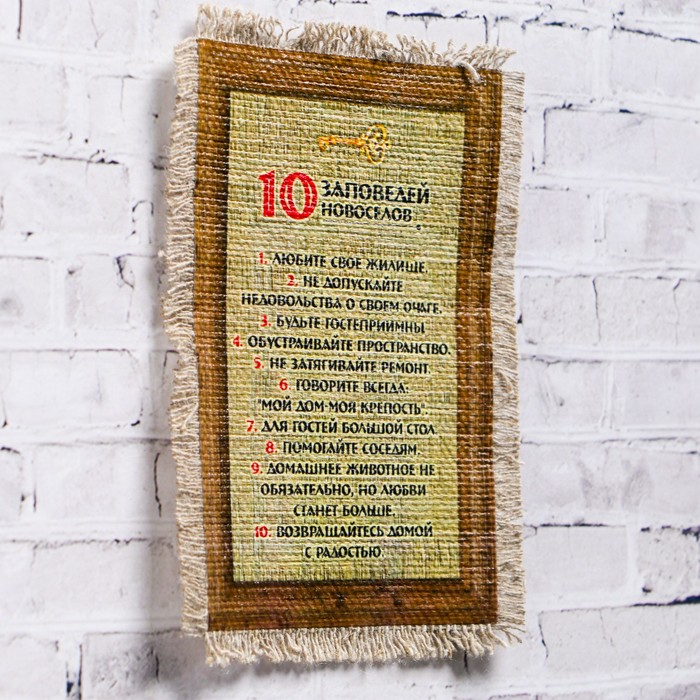 10 ЗАПОВЕДЕЙ
НОВОСЕЛОВ
1. ЛЮБИТЕ СВОЕ ЖИЛИЩЕ.
2. НЕ ДОПУСКАЙТЕ
НЕДОВОЛЬСТВА О СВОЕМ ОЧАГЕ.
3. БУДЬТЕ ГОСТЕПРИИМНЫ
4. ОБУСТРАИВАЙТЕ ПРОСТРАНСТВО.
5. НЕ ЗАТЯГИВАЙТЕ РЕМОНТ.
6. ГОВОРИТЕ ВСЕГДА:
"МОЙ ДОМ-МОЯ КРЕПОСТЬ".
7. ДЛЯ ГОСТЕЙ БОЛЬШОЙ СТОЛ.
8. ПОМОГАЙТЕ СОСЕДЯМ.
9. ДОМАШНЕЕ ЖИВОТНОЕ НЕ
ОБЯЗАТЕЛЬНО, НО ЛЮБВИ
СТАНЕТ БОЛЬШЕ.
10. ВОЗВРАЩАЙТЕСЬ ДОМОЙ
С РАДОСТЬЮ.